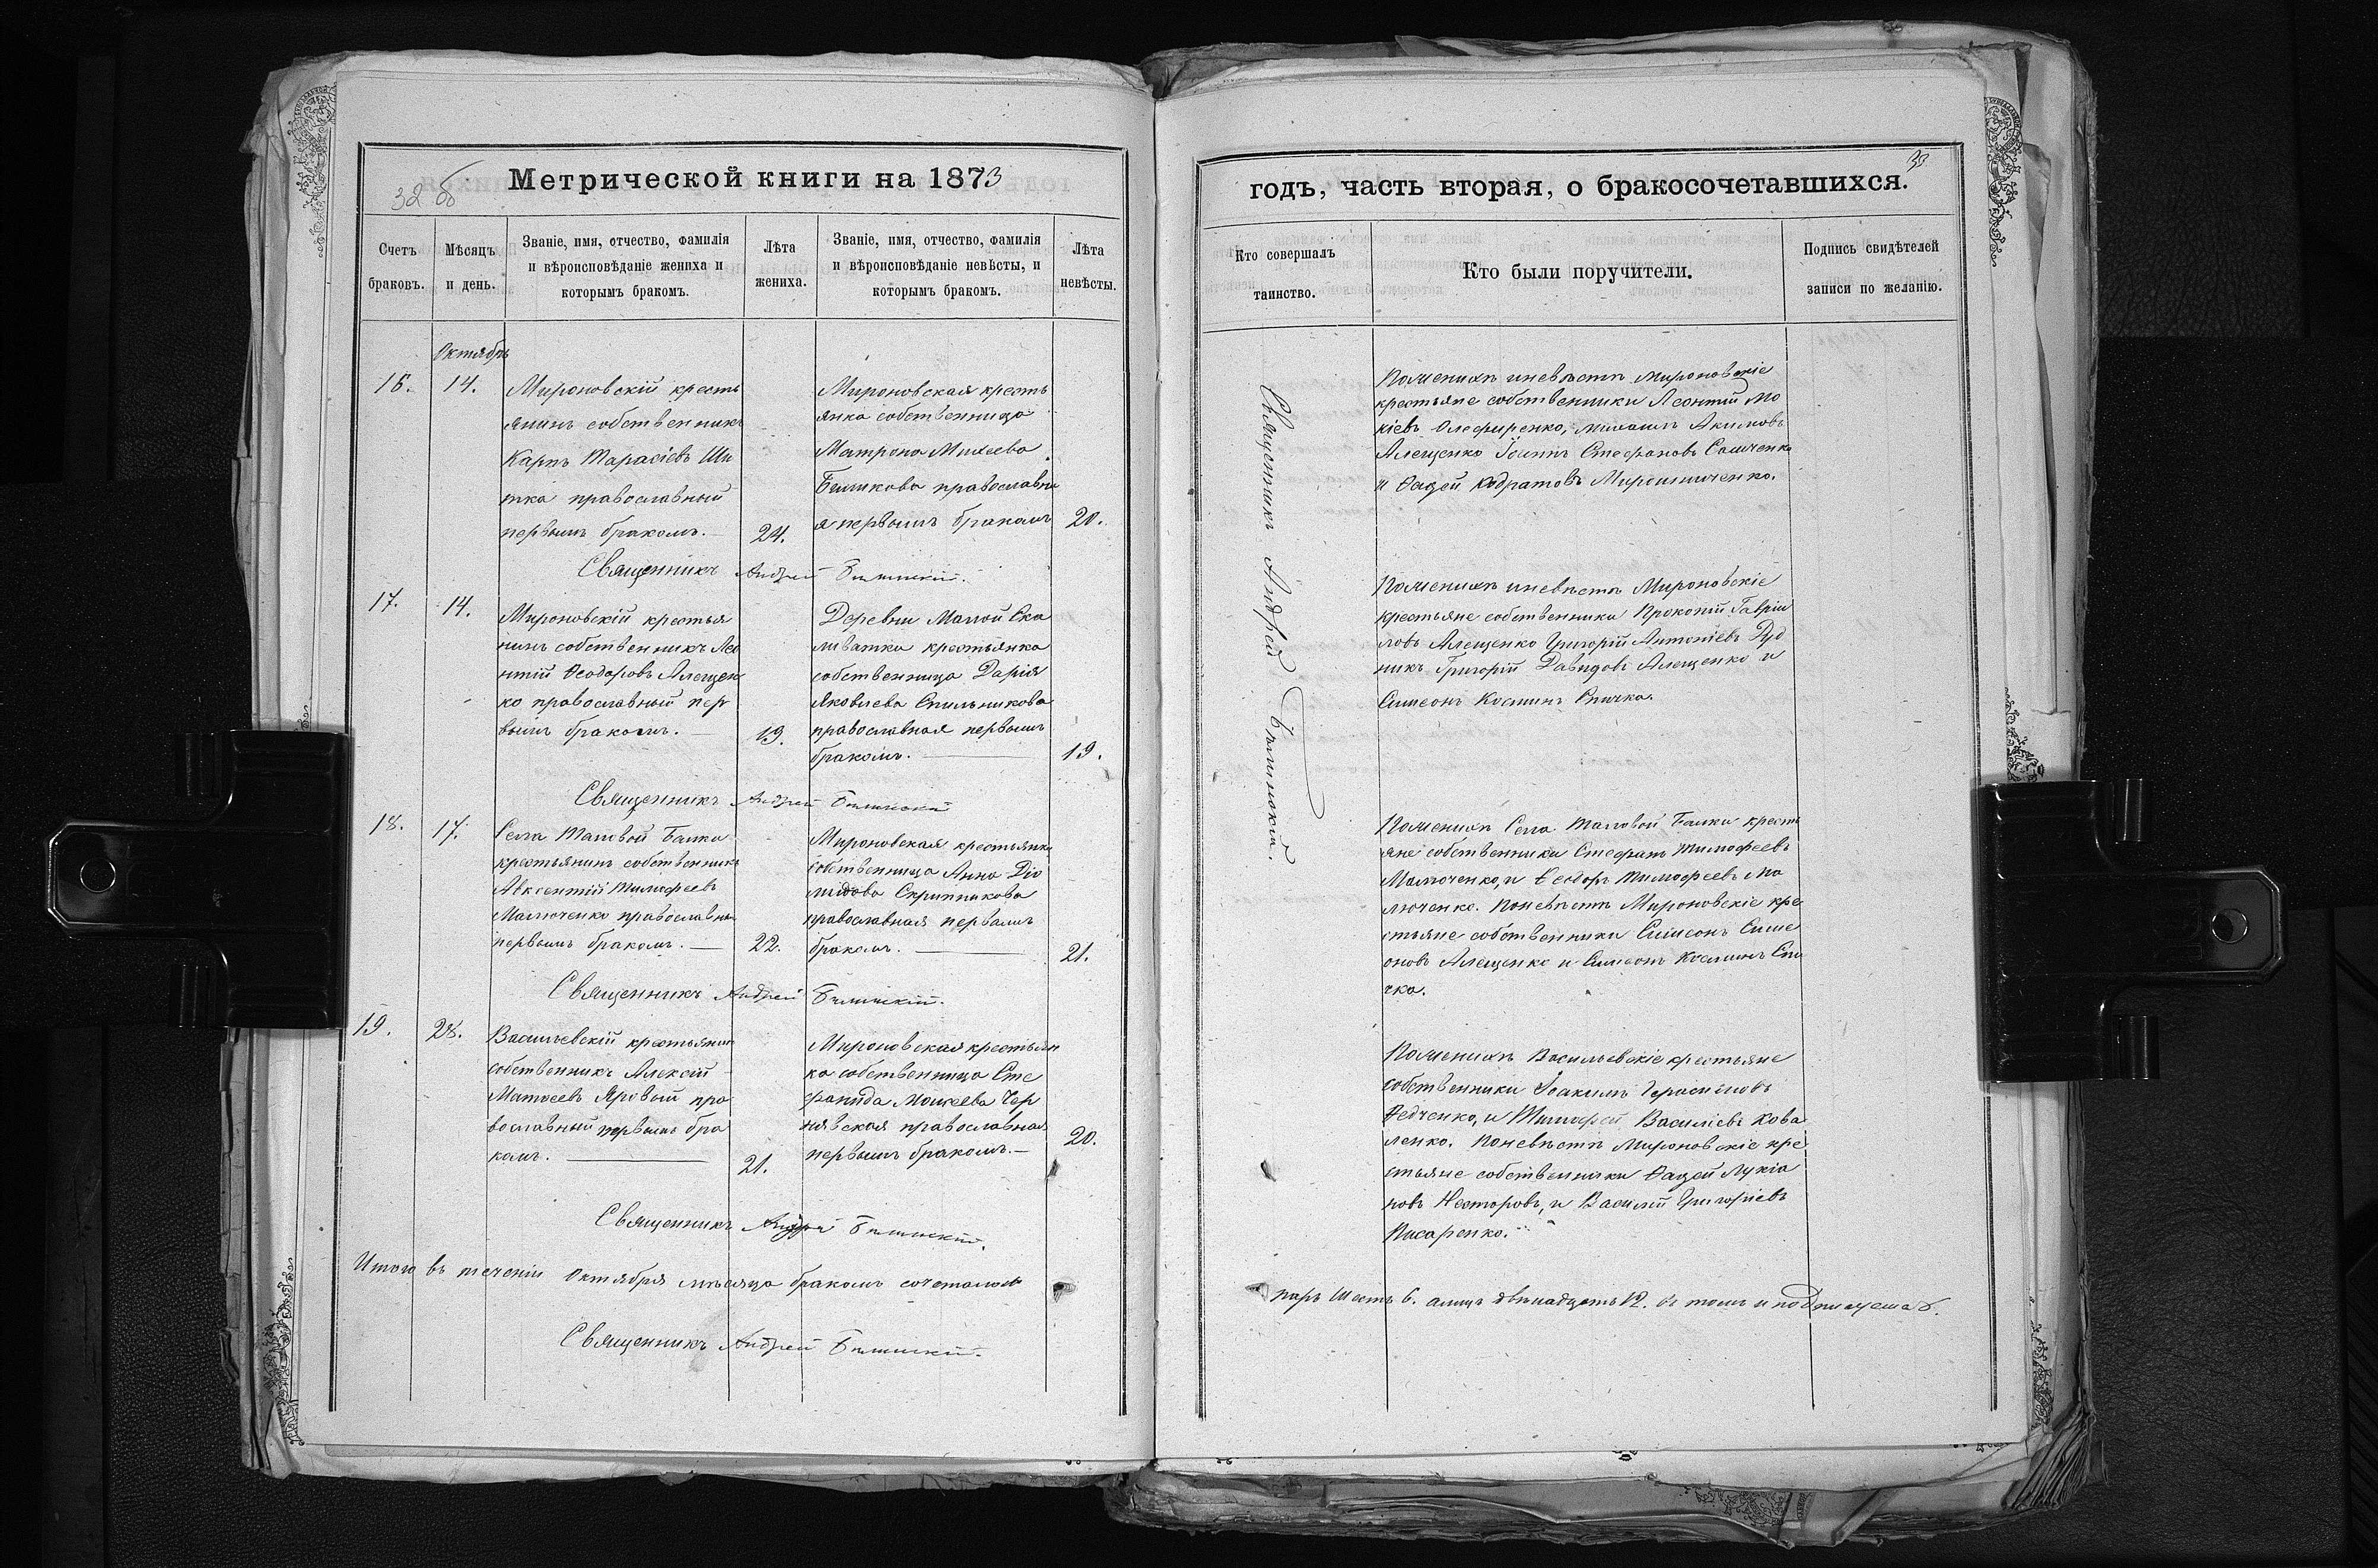 32 об
Метрической книги на 1873
Счетъ браковъ.
Мѣсяцъ и день.
Званіе, имя, отчество, фамилія
и вѣроисповѣданіе жениха и
которымъ бракомъ.
Лѣта жениха.
Званіе, имя, отчество, фамилія
и вѣроисповѣданіе невѣсты, и
которымъ бракомъ.
Лѣта невѣсты.
Октябрь
16.
14.
Мироновскій кресть
янинъ собственникъ
Карпъ Тарасіевъ Ши
тка православный
первымъ бракомъ.
24.
Мироновская кресть
янка собственница
Матрона Михеева
Бѣликова православна
я первымъ бракомъ
20.
Священникъ Андрей
17.
14.
Мироновскій крестья
нинъ собственникъ Лео
нтій Ѳеодоровъ Алещен
ко православный пер
вымъ бракомъ.
19.
Деревни Малой Ска
ливатки крестьянка
собственница Дарія
Яковлева Спильникова
православная первымъ
бракомъ.
19.
Священникъ Андрей
18.
17.
Села Таловой Балки
крестьянинъ собственникъ
Авксентій Тимофеевъ
Малюченко православны
первымъ бракомъ.
22.
Мироновская крестьянка
собственница Анна Діо
мидова Скрипникова
православная первымъ
бракомъ.
21.
Священникъ Андрей
19.
28.
Васильевскій крестьянин
собственникъ Алексій
Матѳеевъ Яровый пра
вославный первымъ бра
комъ.
21.
Мироновская крестьян
ка собственница Сте
фанида Моисеева Чер
нявская православная
первымъ бракомъ.
20.
Священникъ Андрей
Итого въ теченіи Октября мѣсяца бракомъ сочеталось
Священникъ Андрей
33
годъ, часть вторая, о бракосочетавшихся.
Кто совершалъ таинство.
Кто были поручители.
Подпись свидѣтелей
записи по желанію.
Священникъ Андрей
По женихѣ и невѣстѣ Мироновскіе
крестьяне собственники Леонтій Мо
кіевъ Олефиренко, Михаилъ Акимовъ
Алещенко Іоаннъ Стефановъ Савченко
и Ѳадей Кодратовъ Мирошниченко.
По женихѣ и невѣстѣ Мироновскіе
крестьяне собственники Прокопій Гаврии
ловъ Алещенко Григорій Антоніевъ Руд
никъ Григорій Давидовъ Алещенко и
Симеонъ Космин Спичка.
По женихѣ Села Таловой Балки кресть
яне собственники Стефанъ Тимофеевъ
Малюченко, и Ѳеодоръ Тимофеевъ Ма
люченко. По невѣстѣ Мироновскіе кре
стьяне собственники Симеонъ Симе
оновъ Алещенко и Симеонъ Косминъ Спи
чка.
По женихѣ Васильевскіе крестьяне
собственники Іоакимъ Герасимовъ
Ѳедченко, и Тимофей Василіевъ Кова
ленко. По невѣстѣ Мироновскіе кре
стьяне собственники Ѳадей Лукіа
новъ Несторовъ, и Василій Григоріевъ
Писаренко.
паръ Шесть 6. а лицъ двѣнадцать 12. въ томъ и